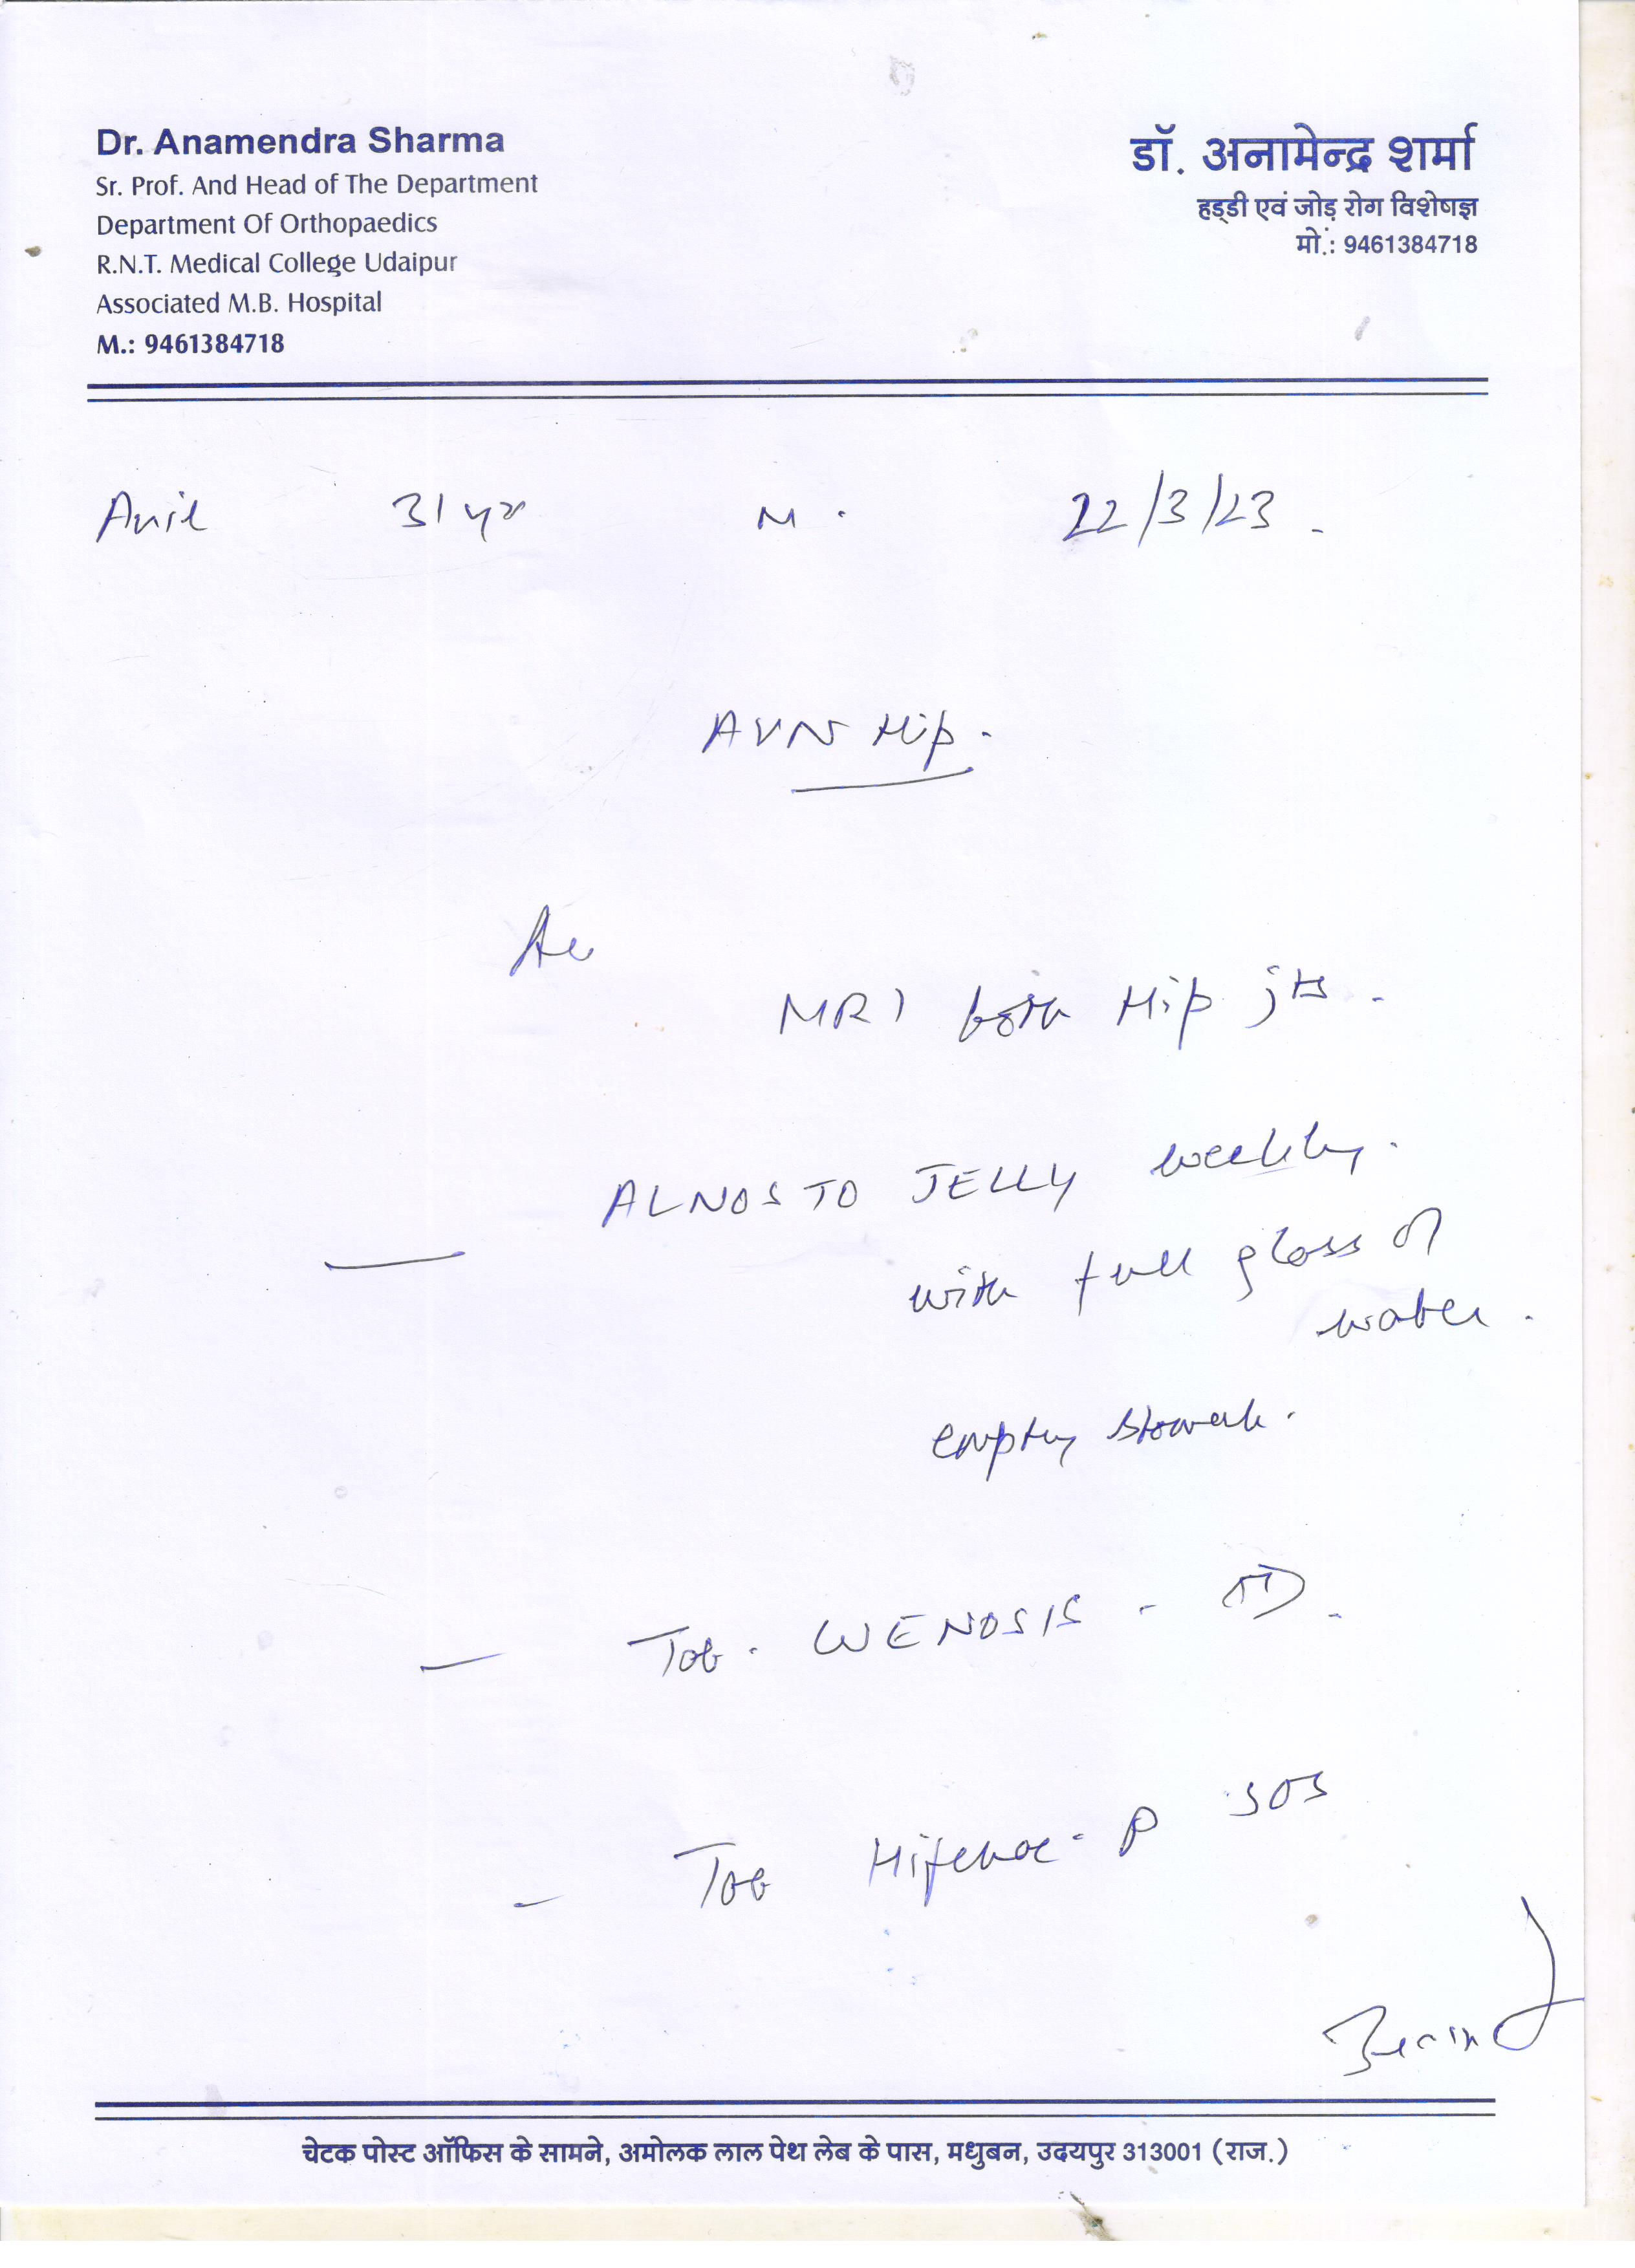 Dr. Anamendra Sharma
Sr. Prof. And Head of The Department
Department Of Orthopaedics
R.N.T. Medical College Udaipur
Associated M.B. Hospital
M.: 9461384718
डॉ. अनामेन्द्र शर्मा
हड्डी एवं जोड़ रोग विशेषज्ञ
मो.: 9461384718
Anil 31 yr M. 22/3/23.
AVN Hip.
MRI both Hip jts.
ALNOSTO JELLY weekly.
with full glass of
water.
empty stomach.
Tab. WENOSIS -
Tab Hifenac-P SOS
चेटक पोस्ट ऑफिस के सामने, अमोलक लाल पेथ लेब के पास, मधुबन, उदयपुर 313001 (राज.)